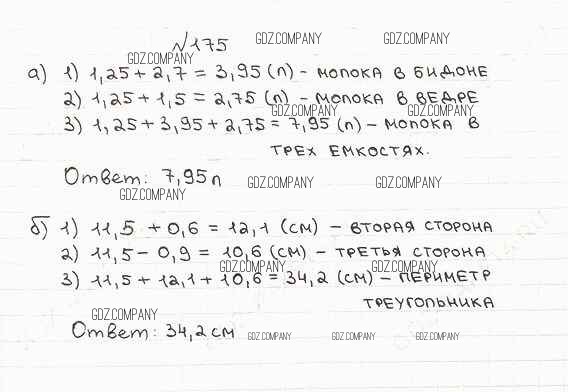 №175 GDZ.COMPANY GDZ.COMPANY
GDZ.COMPANY
а) 1) 1,25 + 2,7 = 3,95 (л) - молока в бидоне
2) 1,25 + 1,5 = 2,75 (л) - молока в ведре
GDZ.COMPANY GDZ.COMPANY
3) 1,25 + 3,95 + 2,75 = 7,95 (л) - молока в
трех емкостях.
Ответ: 7,95 л GDZ.COMPANY GDZ.COMPANY
GDZ.COMPANY
б) 1) 11,5 + 0,6 = 12,1 (см) - вторая сторона
2) 11,5 - 0,9 = 10,6 (см) - третья сторона
GDZ.COMPANY GDZ.COMPANY
3) 11,5 + 12,1 + 10,6 = 34,2 (см) - периметр
треугольника
GDZ.COMPANY
Ответ: 34,2 см GDZ.COMPANY GDZ.COMPANY GDZ.COMPANY